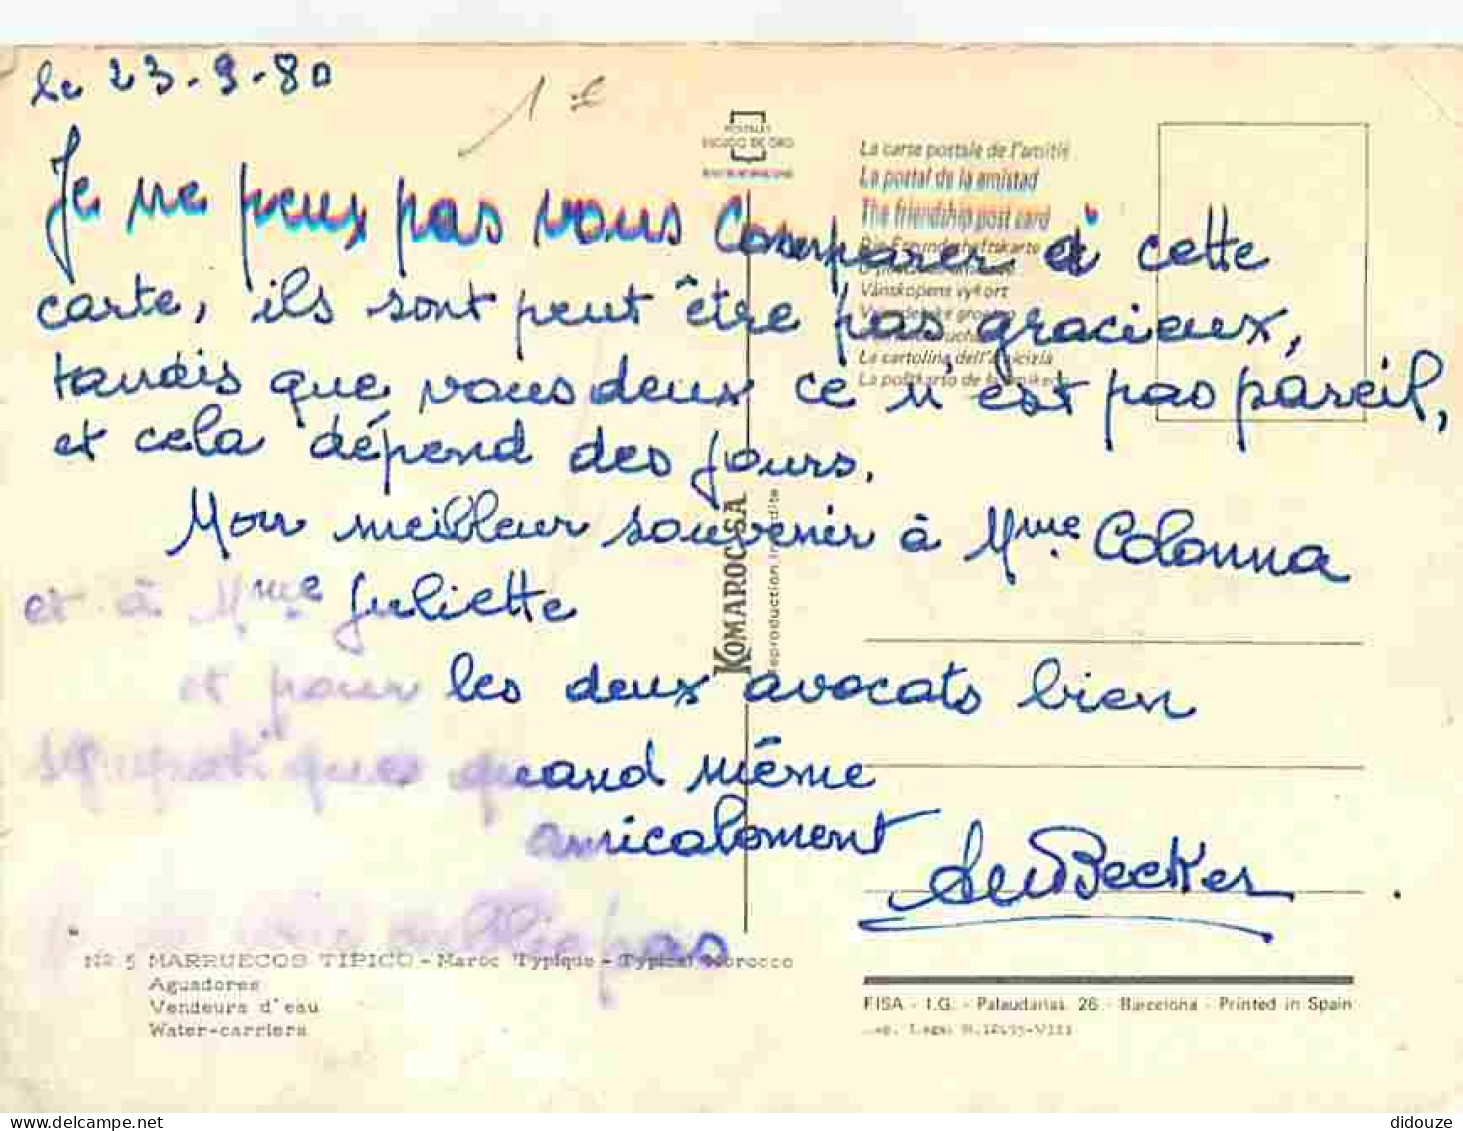 le 23-9-80
1 €
POSTALES
ESCUDO DE ORO
La carte postale de l'amitié
La postal de la amistad
The friendship post card
Die Freundschaftskarte
Vänskapens vykort
La cartolina dell'amicizia
Je ne peux pas vous comparer à cette
carte, ils sont peut être pas gracieux,
tandis que vous deux ce n'est pas pareil,
et cela dépend des jours.
Mon meilleur souvenir à Mme Colonna
et à Mme Juliette
et pour les deux avocats bien
sympatiques quand même
amicalement
Becker
oublie pas
KOMAROC.SA
reproduction interdite
No. 5 MARRUECOS TIPICO - Maroc Typique - Typical Morocco
Aguadores
Vendeurs d'eau
Water-carriers
FISA - I.G. - Palaudarias, 26 - Barcelona - Printed in Spain
Dep. Legal B.
didouze